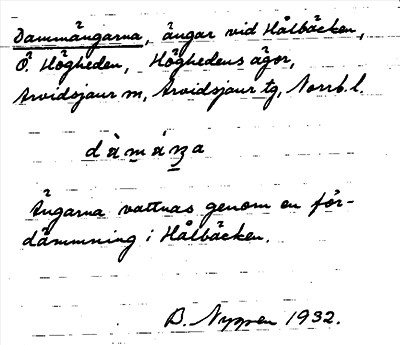 Dammängarna, ängar vid Hålbäcken,
Ö. Högheden, Höghedens ägor,
Arvidsjaur m, Arvidsjaur tg, Norrb. l.
Ängarna vattnas genom en för-
dämmning i Hålbäcken.
B. Nygren 1932.